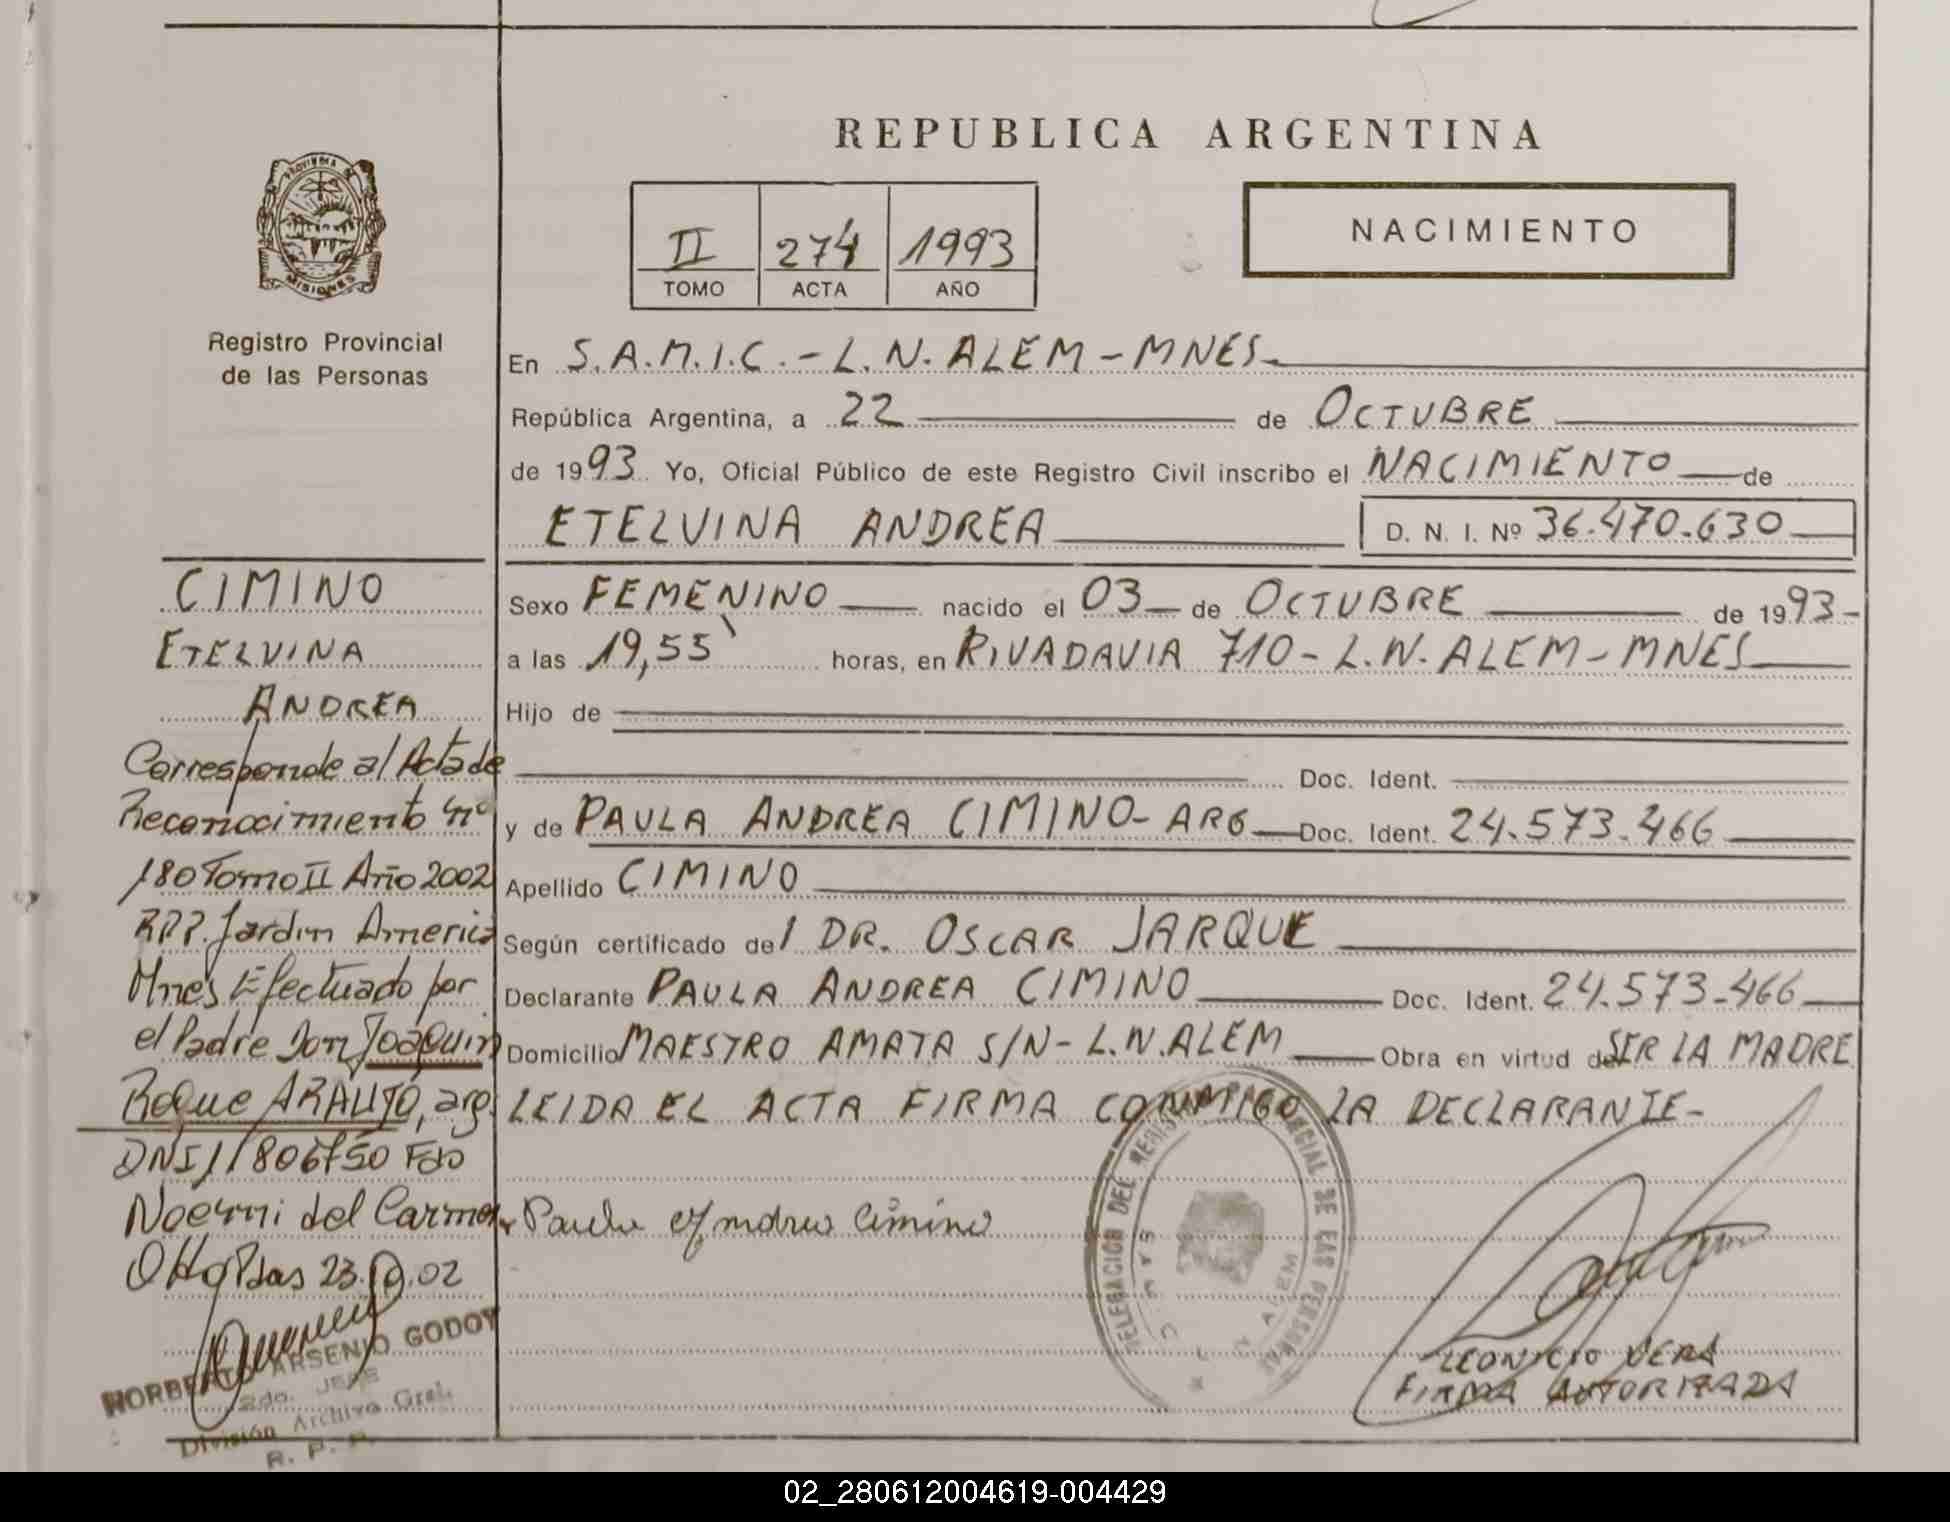 REPUBLICA ARGENTINA
PROVINCIA DE
MISIONES
II 274 1993
TOMO ACTA AÑO
NACIMIENTO
Registro Provincial
de las Personas
En S.A.M.I.C.-L.N.ALEM-MNES-
República Argentina, a 22 de OCTUBRE
de 1993 Yo, Oficial Público de este Registro Civil inscribo el NACIMIENTO de
ETELVINA ANDREA D. N. I. Nº 36.470.630
Sexo FEMENINO nacido el 03 de OCTUBRE de 1993-
a las 19,55 horas, en RIVADAVIA 710-L.N.ALEM-MNES
Hijo de
Doc. Ident.
y de PAULA ANDREA CIMINO-ARG Doc. Ident. 24.573.466
Apellido CIMINO
Según certificado del DR. OSCAR JARQUE
Declarante PAULA ANDREA CIMINO Doc. Ident. 24.573.466
Domicilio MAESTRO AMATA S/N-L.N.ALEM Obra en virtud de SER LA MADRE
LEIDA EL ACTA FIRMA CONMIGO LA DECLARANTE-
Paula Andrea Cimino
DELEGACION DEL REGISTRO PROVINCIAL DE LAS PERSONAS
ALEM
LEONICIO VERA
FIRMA AUTORIZADA
CIMINO
ETELVINA
ANDREA
Corresponde al Acta de
Reconocimiento nº
180 Tomo II Año 2002
RPP. Jardin America
Mnes Efectuado por
el Padre Don Joaquin
Roque ARAUJO, arg.
DNI 11806750 Fdo
Noemi del Carmen
Otto Pdas 23.10.02
NORBERTO ARSENIO GODOY
2do. JEFE
División Archivo Gral.
R. P. P.
02_280612004619-004429